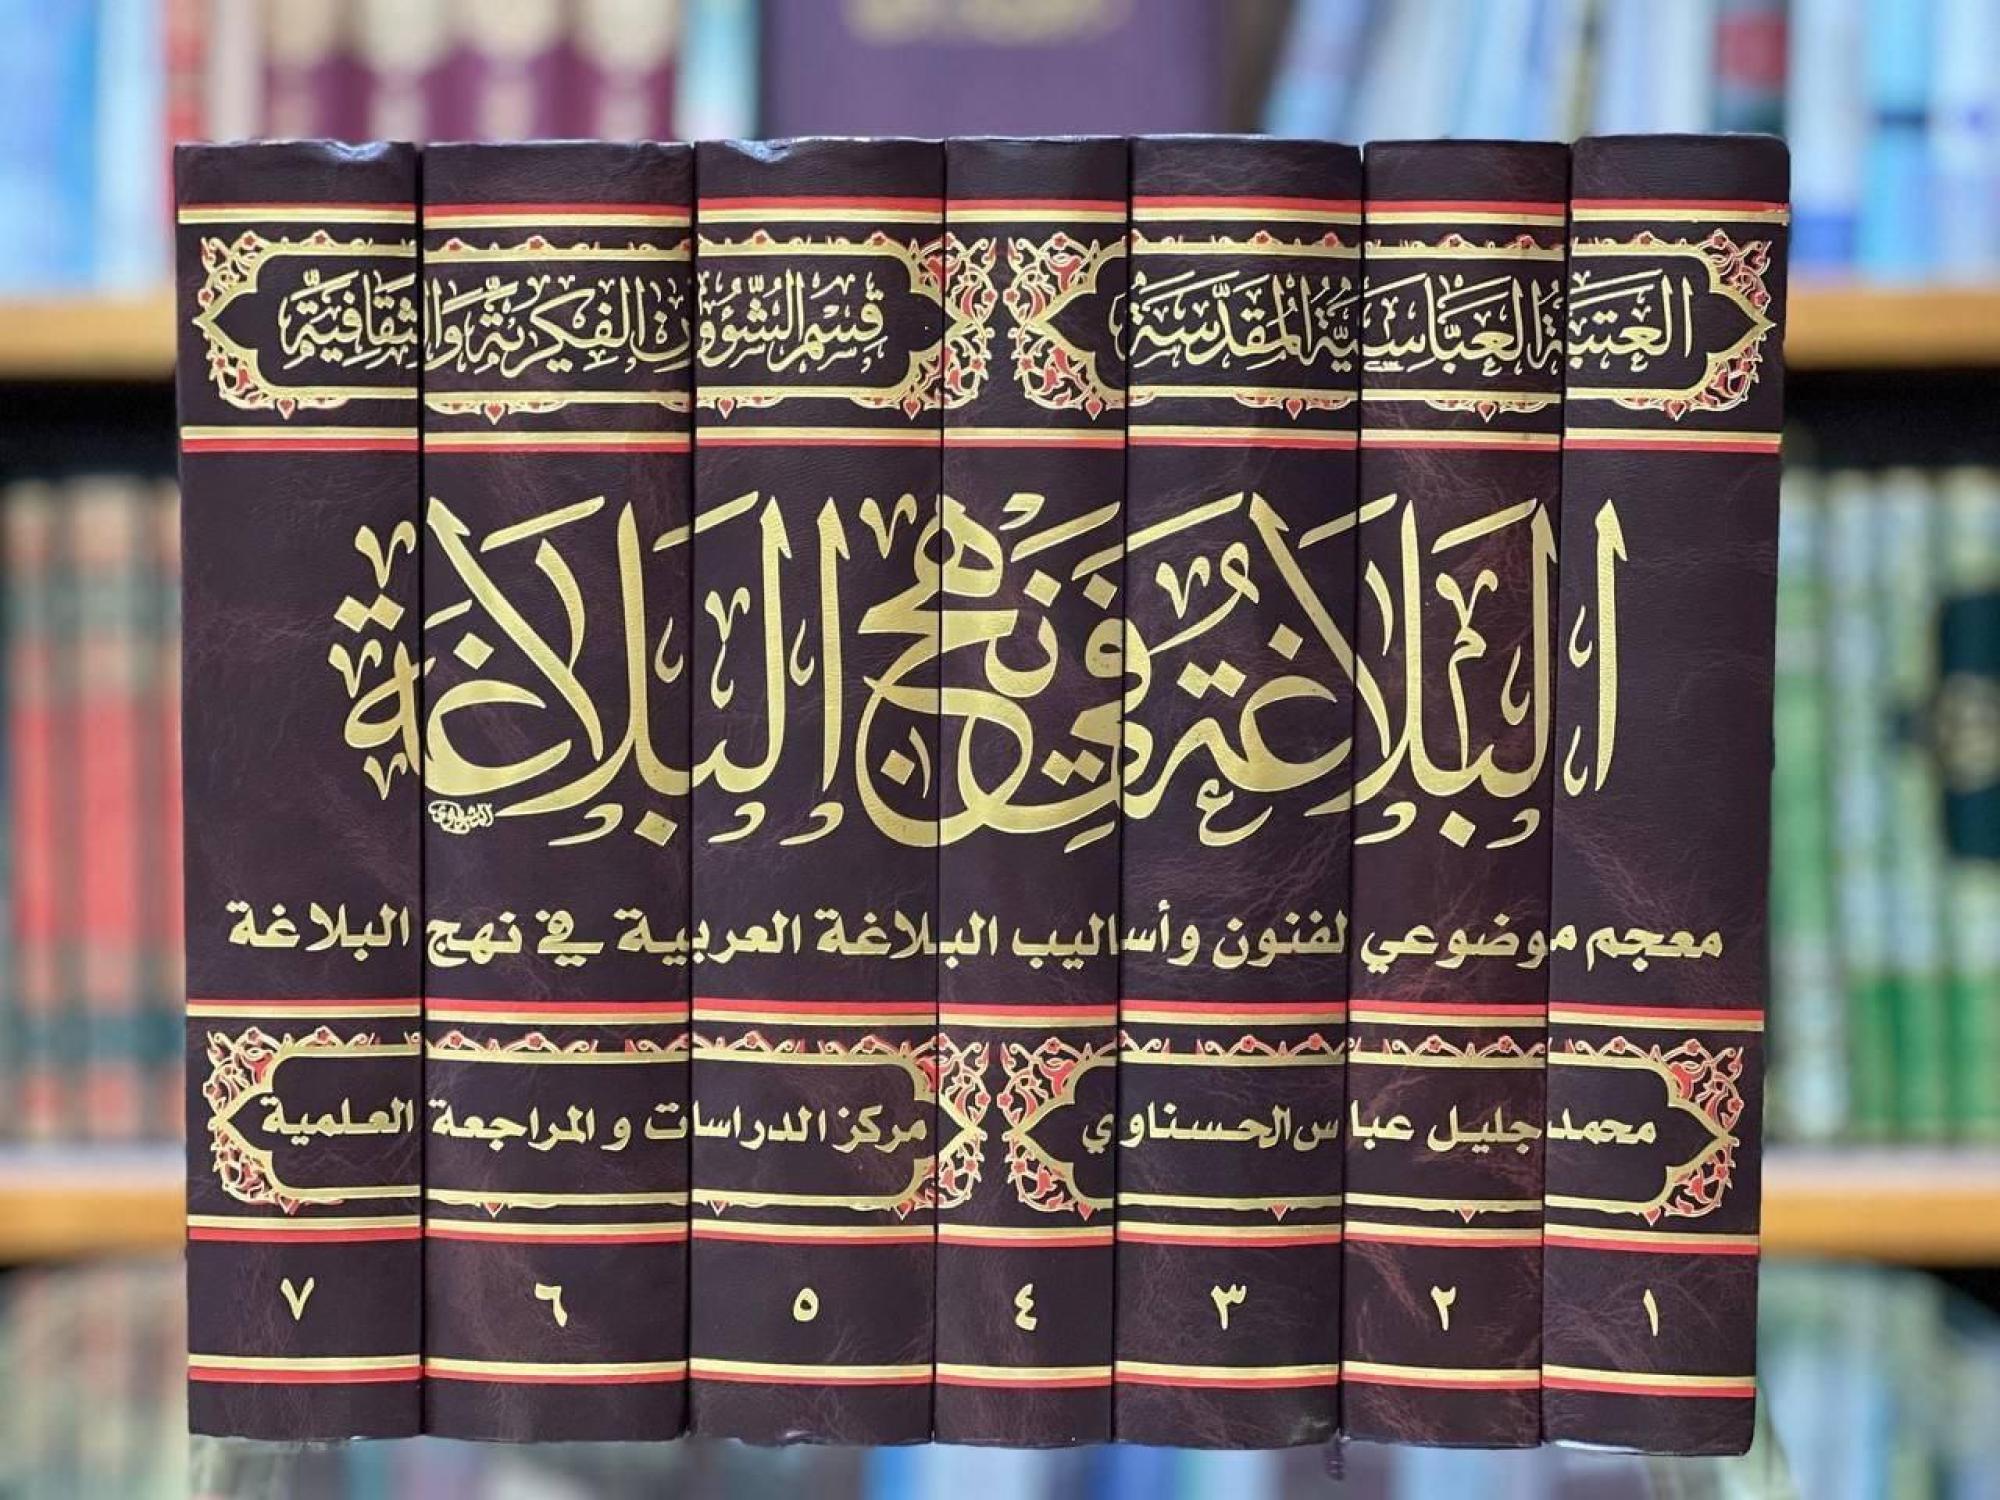 العتبة العباسية المقدسة
قسم الشؤون الفكرية والثقافية
البلاغة في نهج البلاغة
معجم موضوعي لفنون وأساليب البلاغة العربية في نهج البلاغة
محمد جليل عباس الحسناوي
مركز الدراسات والمراجعة العلمية
١ ٢ ٣ ٤ ٥ ٦ ٧